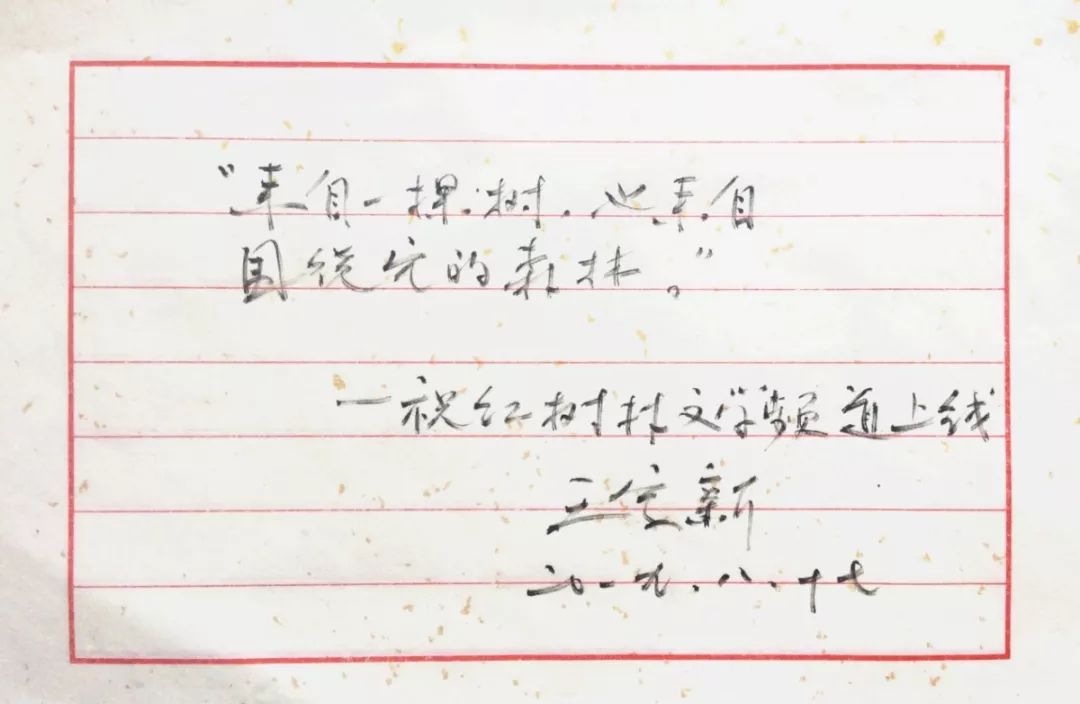 “来自一棵树，也来自
围绕它的森林。”
—祝红树林文学频道上线
王家新
二〇一九.八.十七